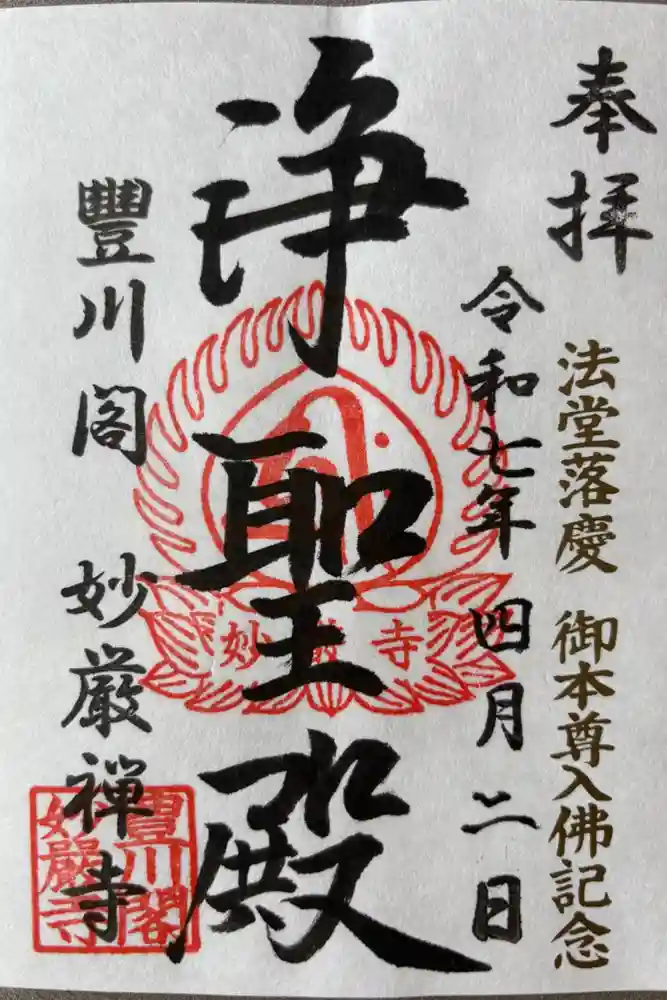 奉拝
法堂落慶 御本尊入佛記念
令和七年 四月 二日
浄聖殿
妙嚴寺
豐川閣 妙厳禅寺
豐川閣
妙嚴寺